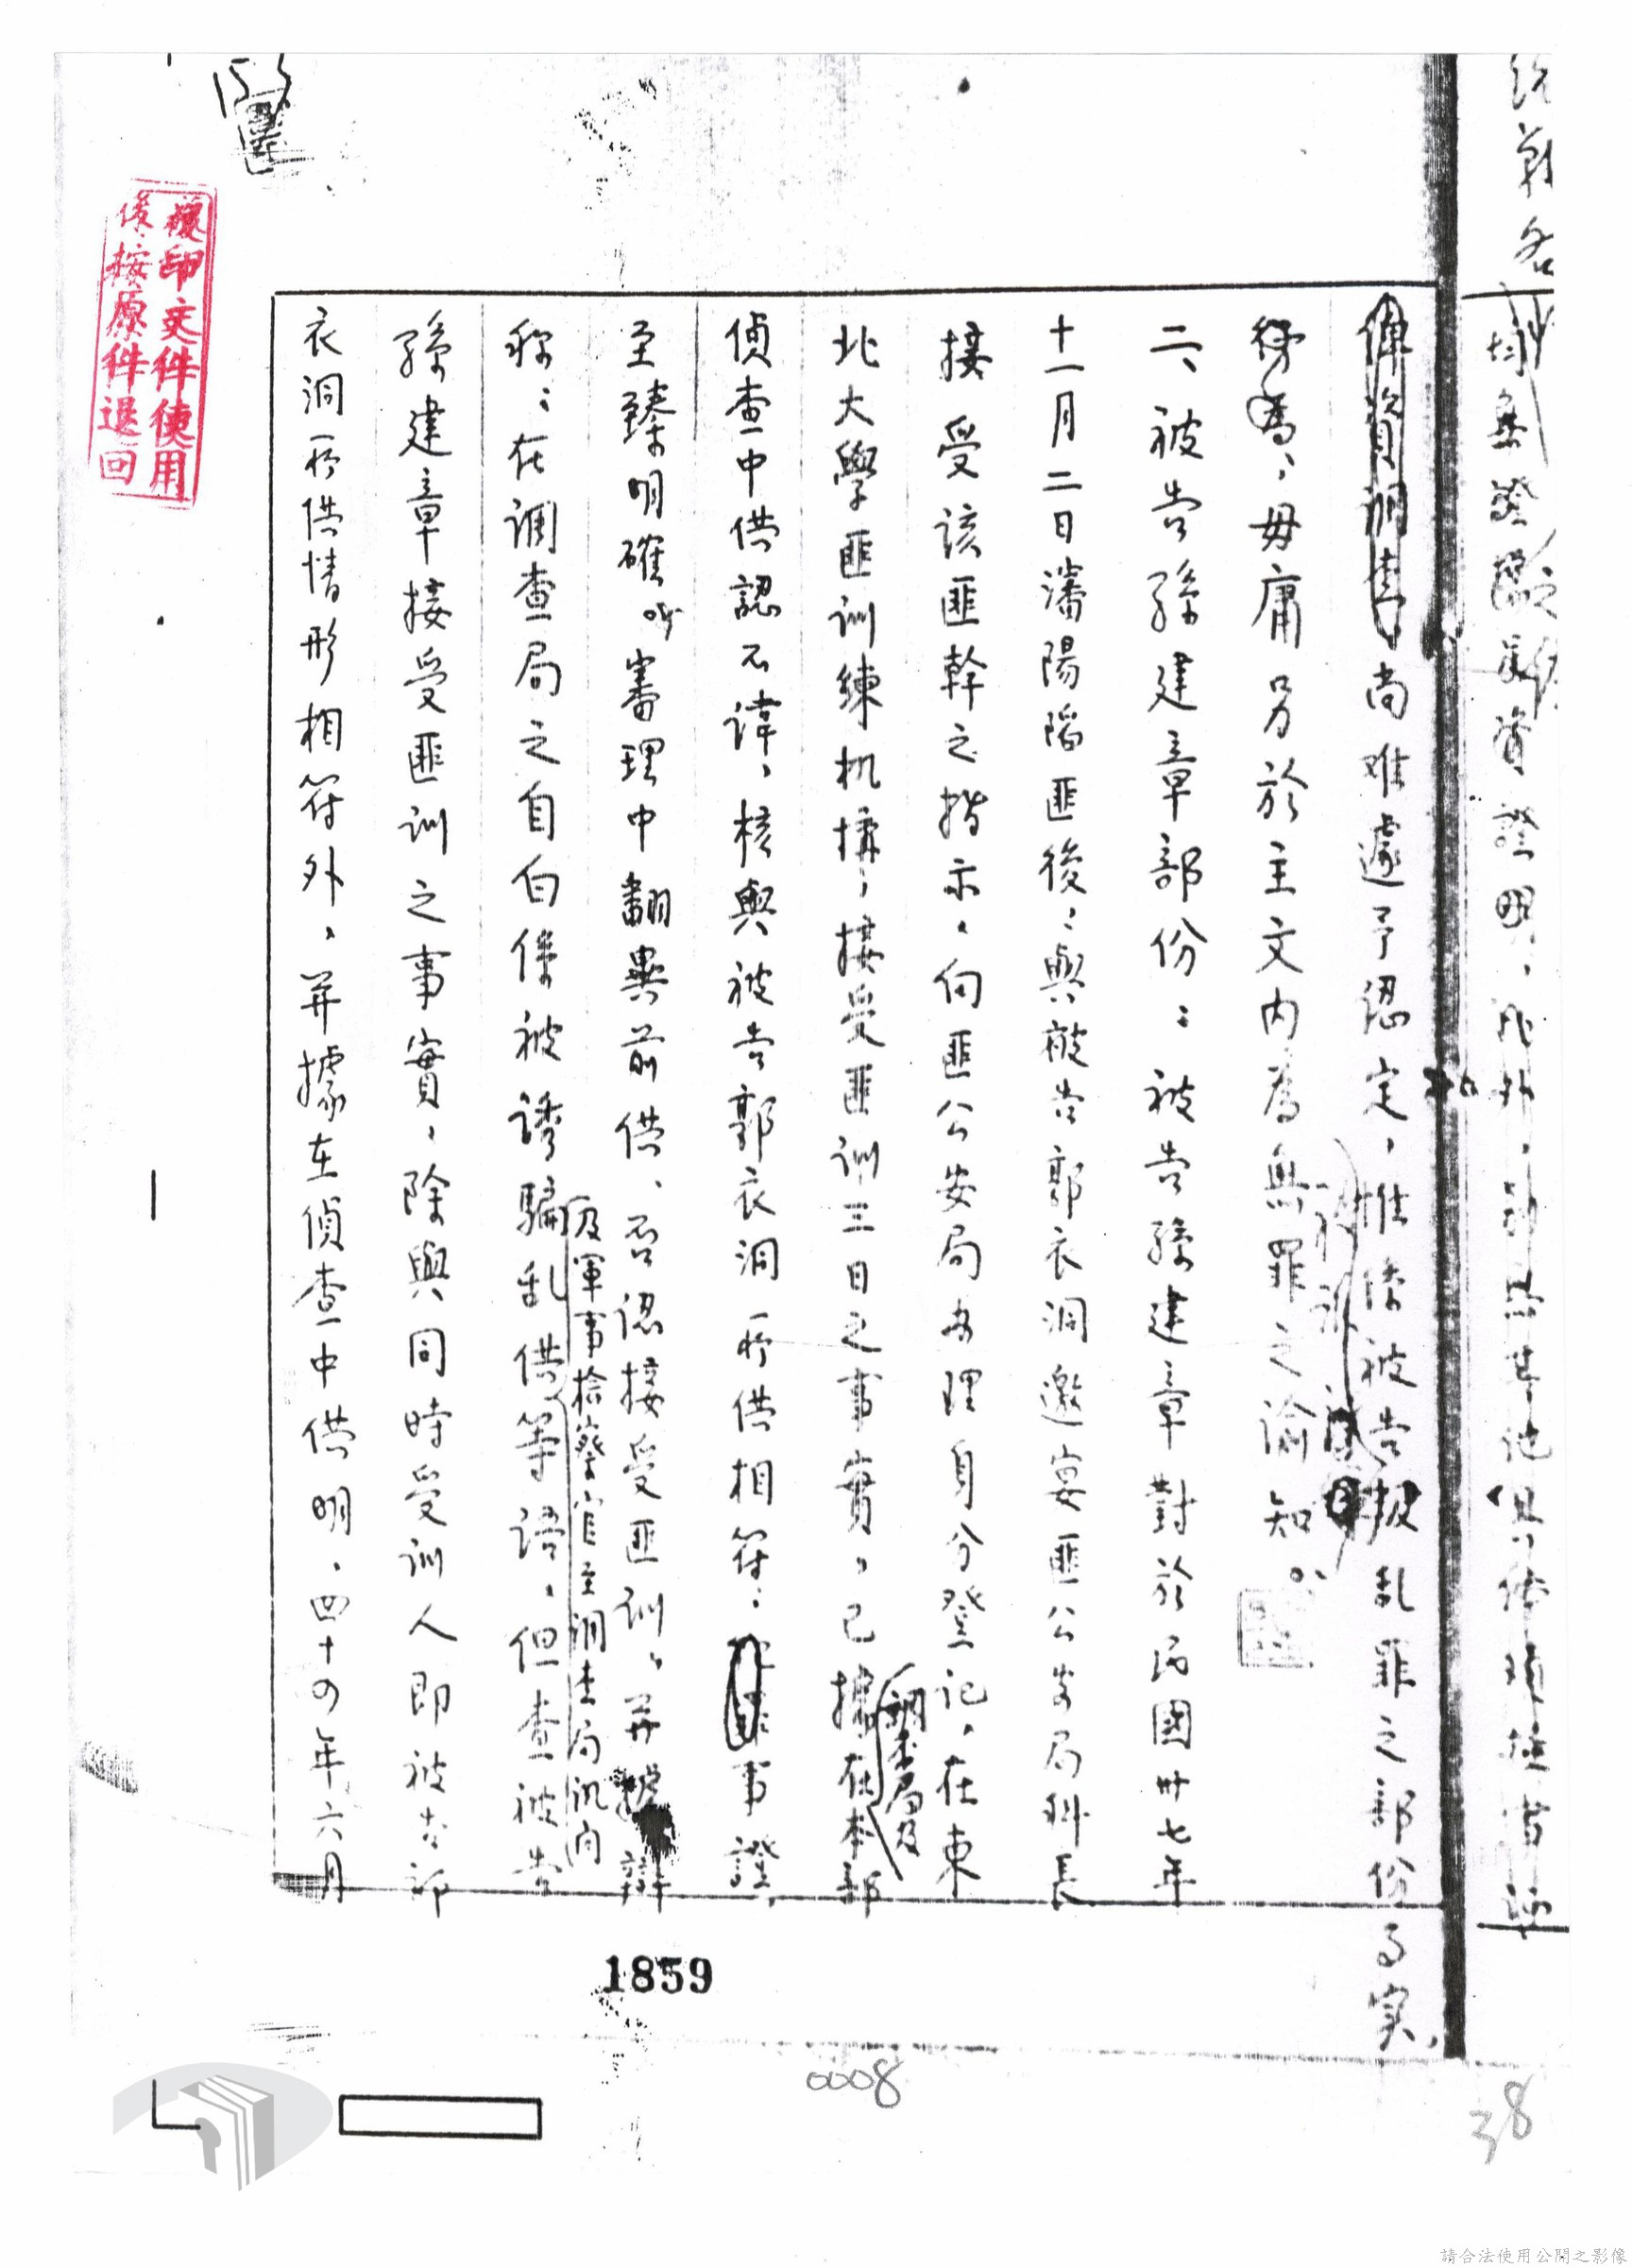 均無證據足資證明，此外，亦無其他具體積極
尚难遽予認定，惟係被告叛乱罪之部份事实，
毋庸另於主文内為無罪之諭知。
二、被告孫建章部份：被告孫建章對於民國卅七年
十一月二日瀋陽陷匪後，與被告郭衣洞邀宴匪公安局科長
接受該匪幹之指示，向匪公安局办理身分登記，在東
北大學匪訓練机構，接受匪訓三日之事實，已據在本部
調查局及
偵查中供認不諱，核與被告郭衣洞所供相符：事證
至臻明確。审理中翻異前供，否認接受匪訓，并辯
及軍事檢察官至調查局訊问
称：在調查局之自白係被誘騙乱供等語，但查被告
孫建章接受匪訓之事實，除與同時受訓人即被告郭
衣洞所供情形相符外，并據在偵查中供明，四十四年六月
複印文件使用
後按原件退回
1859
0008
38
請合法使用公開之影像